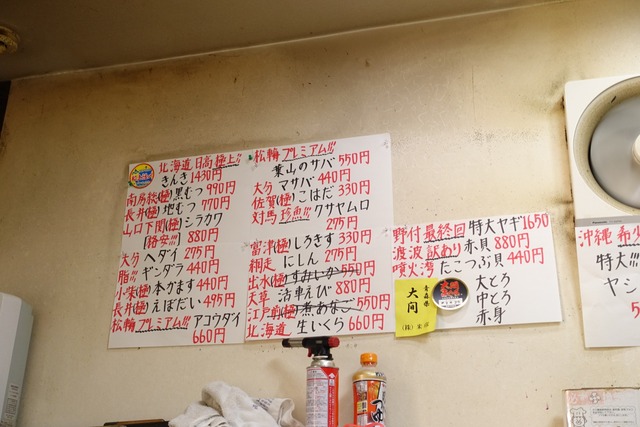 北海道 日高 極上!!
きんき 1430円
南房総(極)黒むつ 990円
長井(極)地むつ 770円
山口下関(極)シラカワ
(格安!!!) 880円
大分 ヘダイ 275円
脂!!! ギンダラ 440円
小柴(極)本かます 440円
長井(極)えぼだい 495円
松輪 プレミアム!!! アコウダイ
660円
松輪 プレミアム!!!
葉山のサバ 550円
大分 マサバ 440円
佐賀(極)こはだ 330円
対馬 珍魚!!! クサヤムロ
275円
富津(極)しろきす 330円
網走 にしん 275円
出水(極)すみいか 550円
天草 活車えび 880円
江戸前(極)煮あなご 550円
北海道 生いくら 660円
野付 最終回 特大ヤギ 1650
渡波 訳わり 赤貝 880円
噴火湾 たこつぶ貝 440円
青森県
大間
大とろ
中とろ
赤身
沖縄 希少
特大!!!
ヤシ